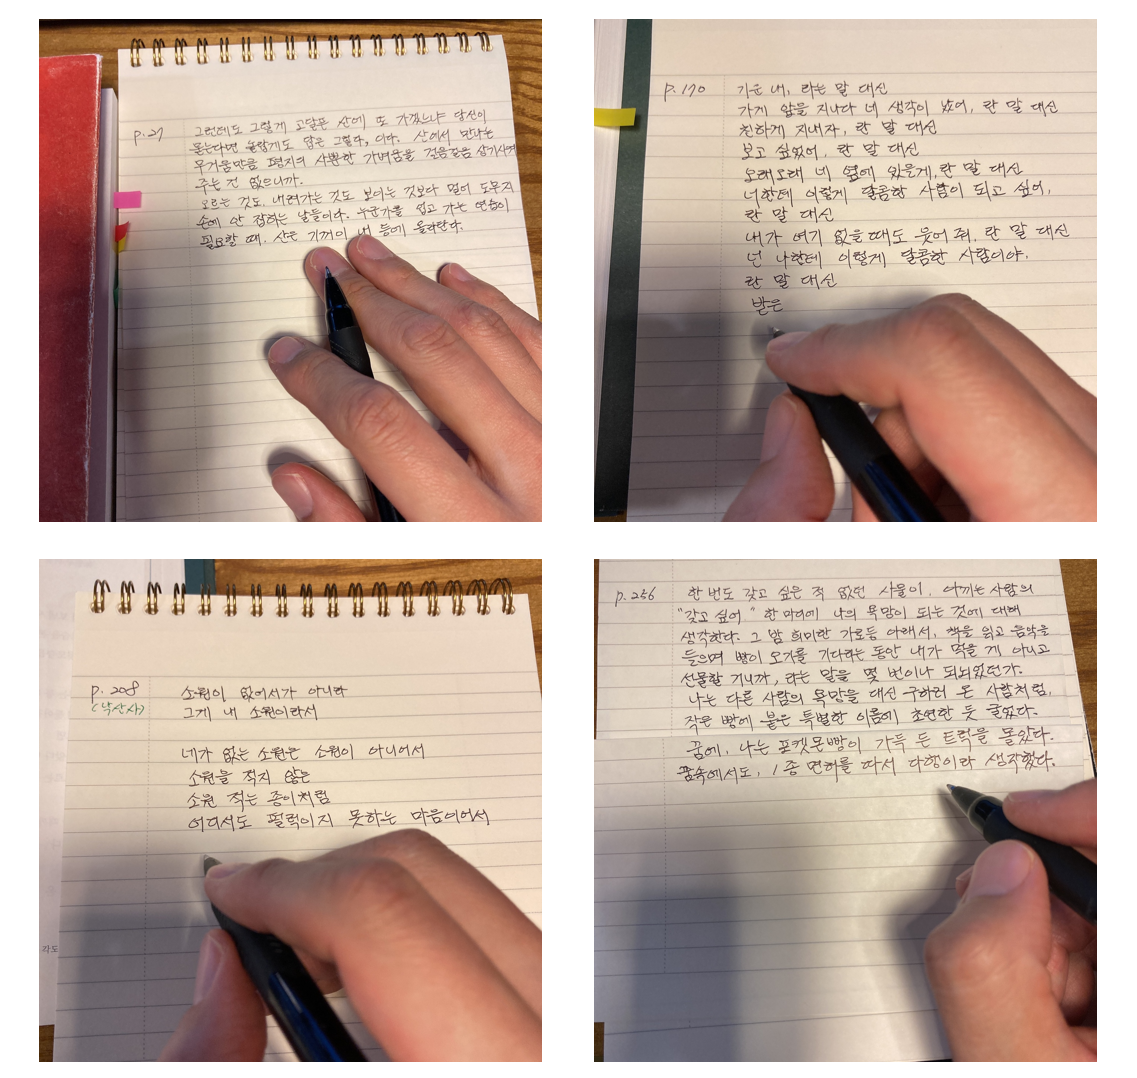 p.27
그런데도 그렇게 고달픈 산에 또 가겠느냐 당신이
묻는다면 놀랍게도 답은 그렇다, 이다. 산에서 만나는
무거움만큼 평지의 사뿐한 가벼움을 걸음걸음 상기시켜
주는 건 없으니까.
오르는 것도, 내려가는 것도 보이는 것보다 멀어 도무지
손에 안 잡히는 날들이다. 누군가를 업고 가는 연습이
필요할 때, 산은 기꺼이 내 등에 올라탄다.
p.170
기운 내, 라는 말 대신
가게 앞을 지나다 네 생각이 났어, 란 말 대신
친하게 지내자, 란 말 대신
보고 싶었어, 란 말 대신
오래오래 네 옆에 있을게, 란 말 대신
너한테 이렇게 달콤한 사람이 되고 싶어,
란 말 대신
내가 여기 없을 때도 웃어 줘, 란 말 대신
넌 나한테 이렇게 달콤한 사람이야,
란 말 대신
받은
p.208
(낙산사)
소원이 없어서가 아니라
그게 내 소원이라서
네가 없는 소원은 소원이 아니어서
소원을 적지 않은
소원 적는 종이처럼
어디서도 펄럭이지 못하는 마음이어서
각도
p.256
한 번도 갖고 싶은 적 없던 사물이, 아끼는 사람의
"갖고 싶어" 한 마디에 나의 욕망이 되는 것에 대해
생각한다. 그 밤 희미한 가로등 아래서, 책을 읽고 음악을
들으며 빵이 오기를 기다리는 동안 내가 먹을 게 아니고
선물할 거니까, 라는 말을 몇 번이나 되뇌었던가.
나는 다른 사람의 욕망을 대신 구하러 온 사람처럼,
작은 빵에 붙은 특별한 이름에 초연한 듯 굴었다.
꿈에, 나는 포켓몬빵이 가득 든 트럭을 몰았다.
꿈속에서도, 1종 면허를 따서 다행이라 생각했다.